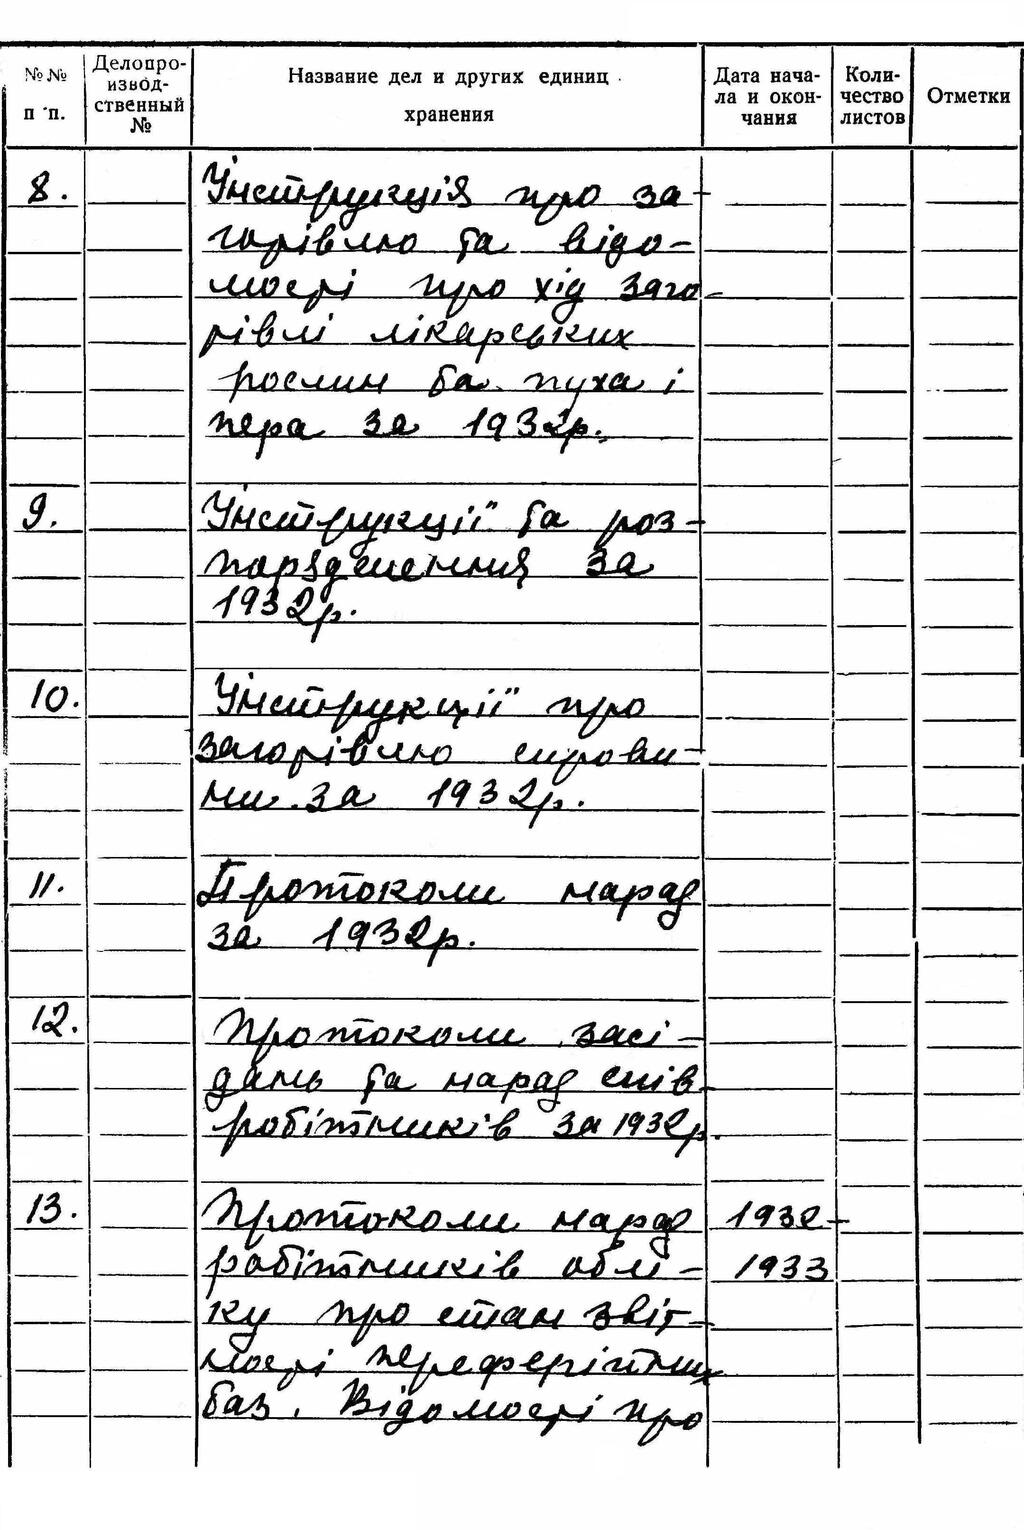 №№ п п.
Делопро-
извод-
ственный
№
Название дел и других единиц
хранения
Дата нача-
ла и окон-
чания
Коли-
чество
листов
Отметки
8.
Інструкція про за-
готівлю та відо-
мості про хід заго-
тівлі лікарських
рослин та пуха і
пера за 1932р.
9.
Інструкції та роз-
порядження за
1932р.
10.
Інструкції про
заготівлю сирови-
ни за 1932р.
11.
Протоколи нарад
за 1932р.
12.
Протоколи засі-
дань та нарад спів-
робітників за 1932р.
13.
Протоколи нарад 1932-
робітників облі- 1933
ку про стан звіт-
ності переферійних
баз. Відомості про